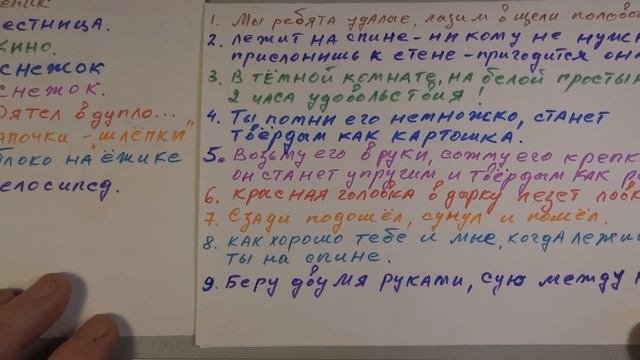 естница.
кино.
снежок
снежок.
дятел в дупло...
тапочки - "шлёпки"
яблоко на ёжике
велосипед.
1. Мы ребята удалые, лазим в щели половы
2. Лежит на спине - никому не нужн
прислонишь к стене - пригодится она
3. В тёмной комнате, на белой простын
2 часа удовольствия!
4. Ты помни его немножко, станет
твёрдым как картошка.
5. Возьму его в руки, сожму его крепк
он станет упругим и твёрдым как ре
6. Красная головка в дырку лезет ловк
7. Сзади подошёл, сунул и пошёл.
8. Как хорошо тебе и мне, когда лежи
ты на спине.
9. Беру двумя руками, сую между н